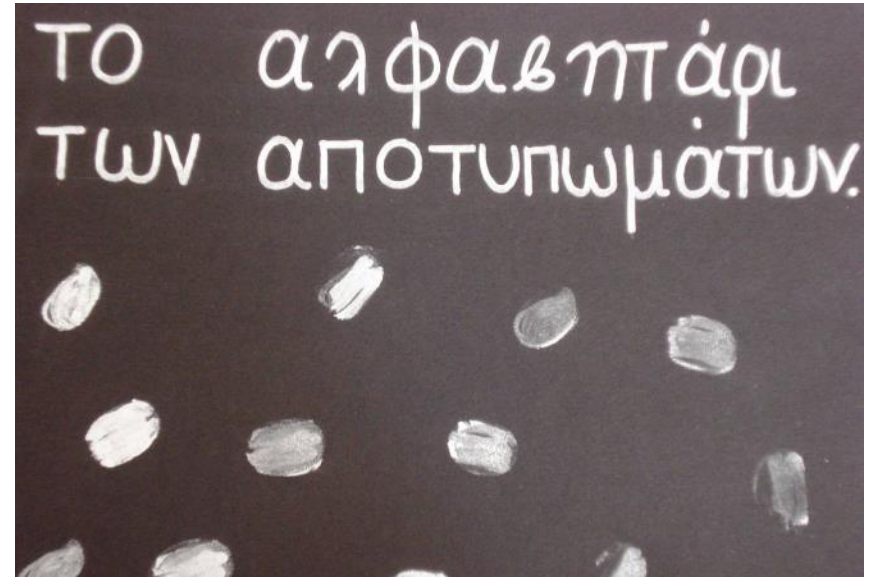 το αλφαβητάρι
των αποτυπωμάτων.